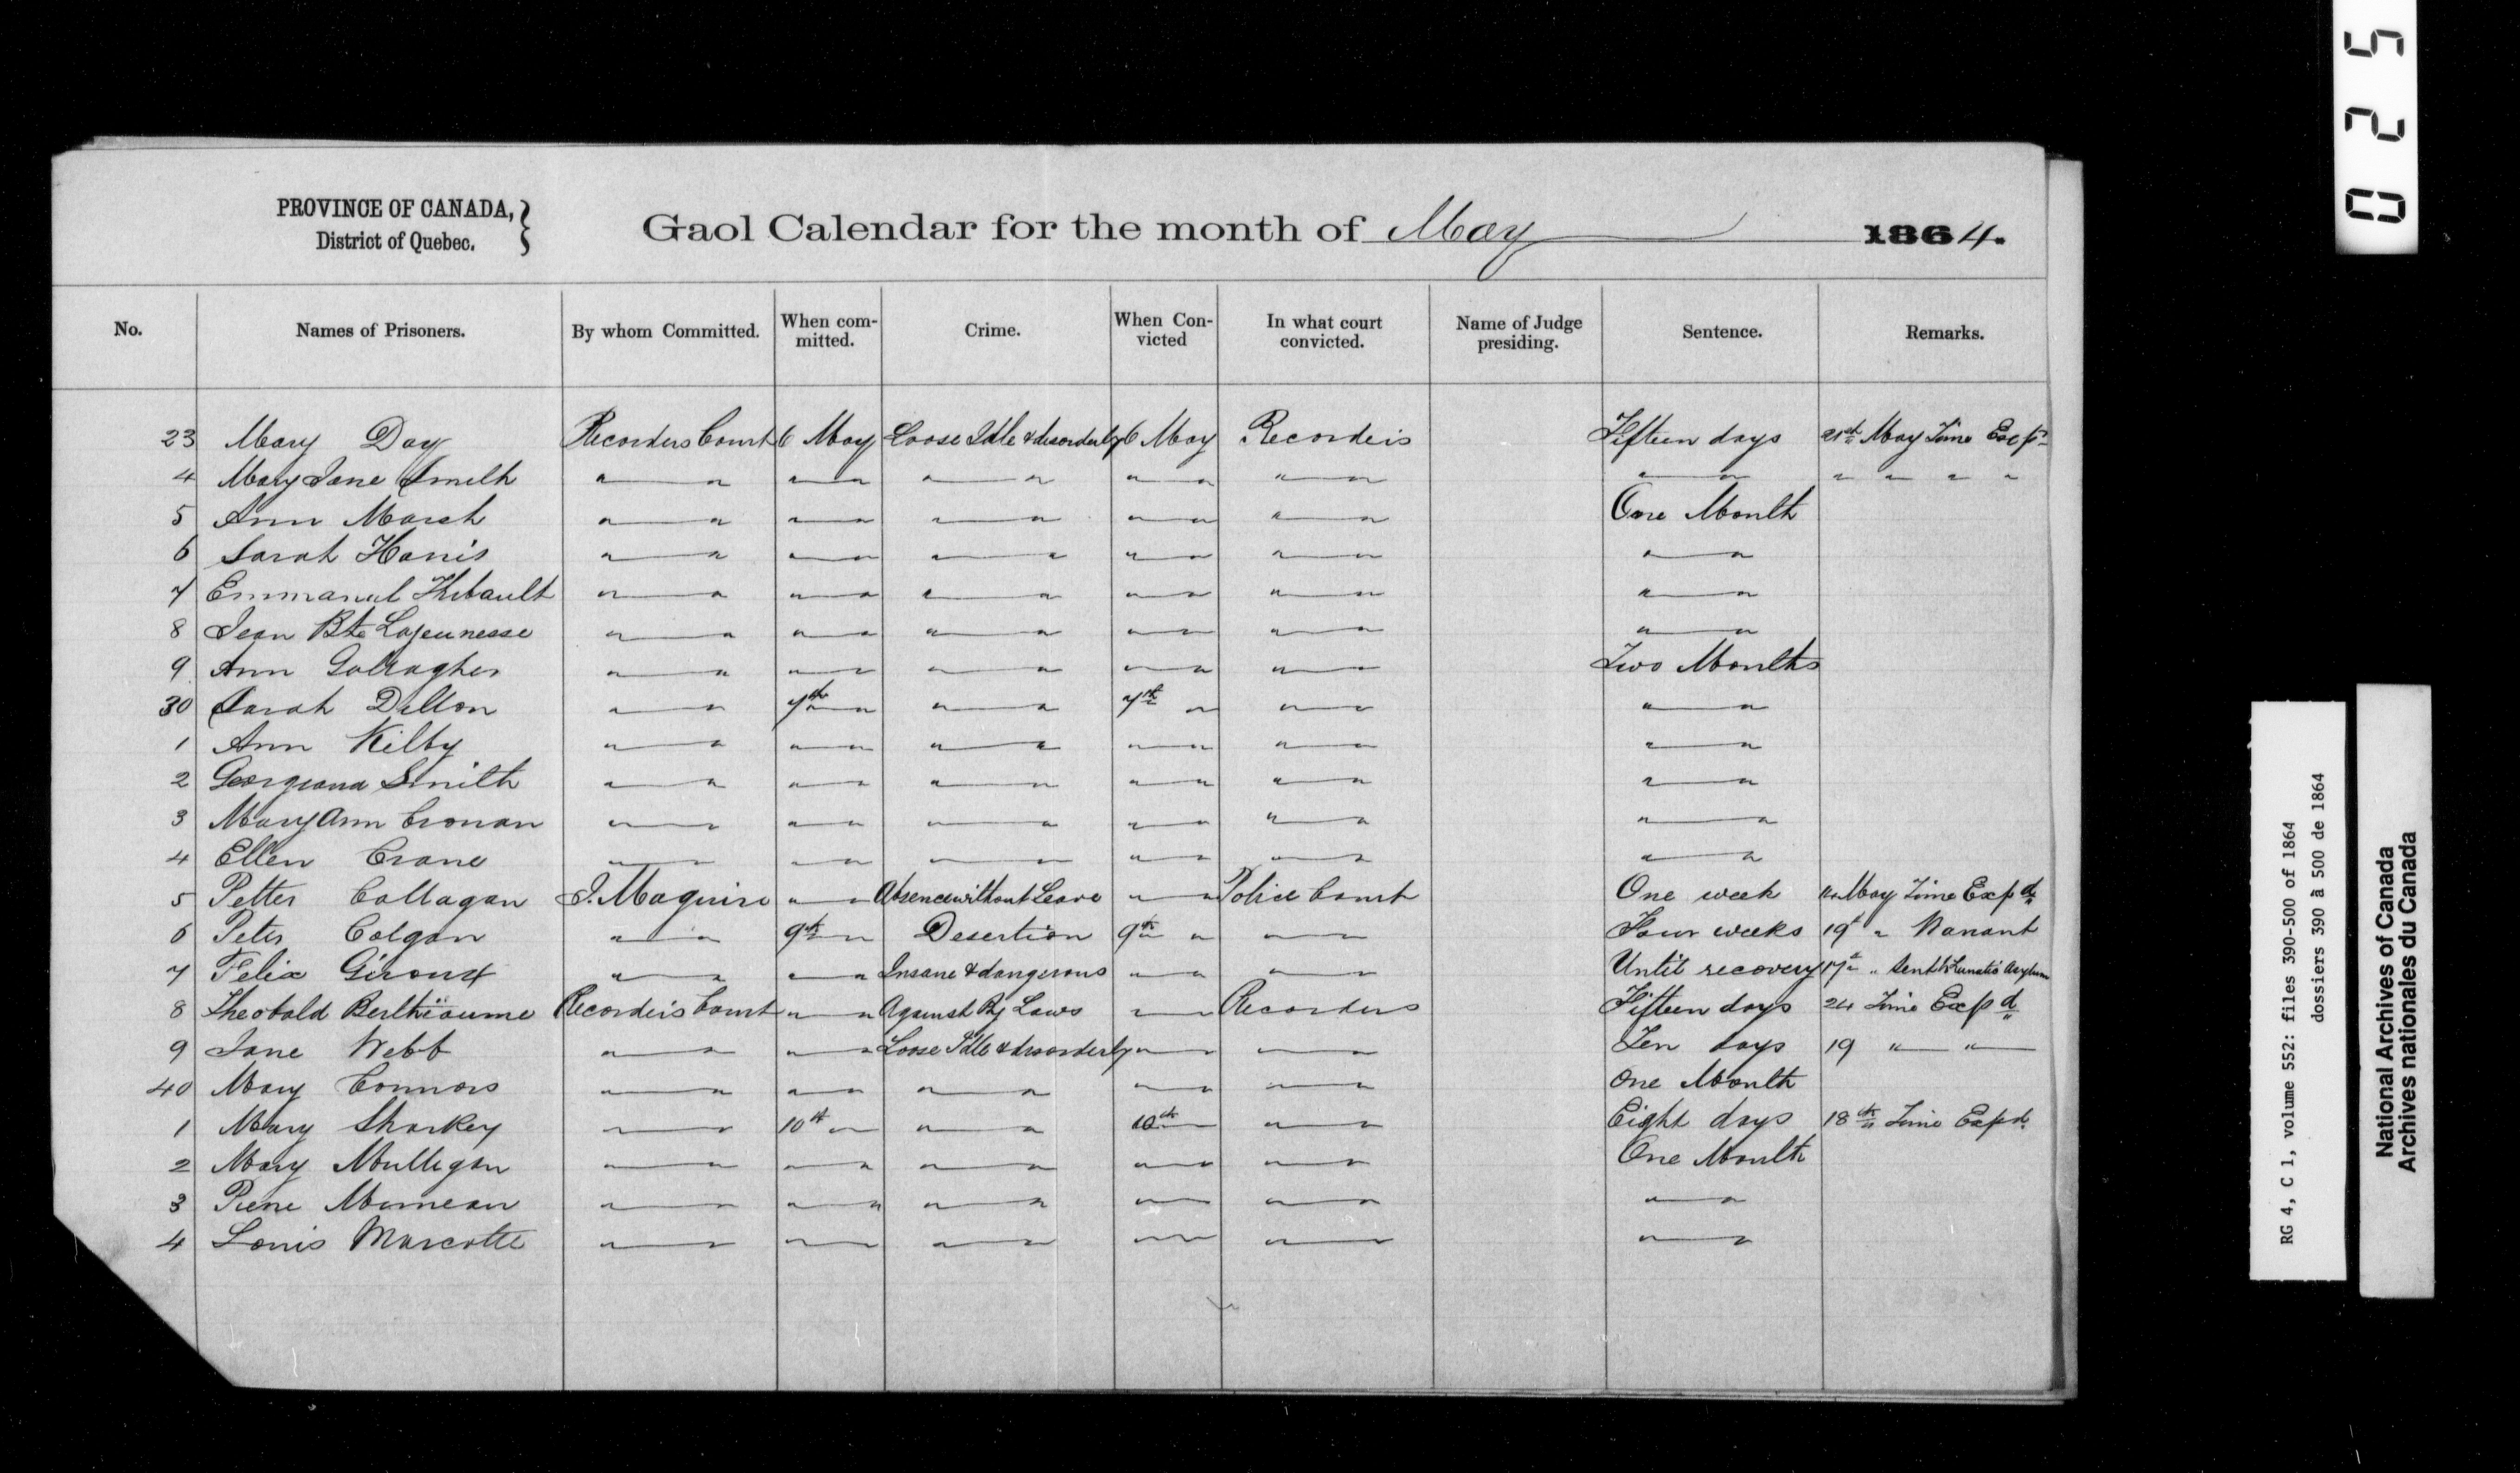 025
PROVINCE OF CANADA, } District of Quebec.
Gaol Calendar for the month of May 1864.
No. Names of Prisoners. By whom Committed. When committed. Crime. When Convicted In what court convicted. Name of Judge presiding. Sentence. Remarks.
23 Mary Day Recorders Court 6 May Loose Idle & disorderly 6 May Recorders Fifteen days 21st May Time Exp
4 Mary Jane Smith " " " " " " " " " " " " " " " "
5 Ann Marsh " " " " " " " " " " One Month
6 Sarah Harris " " " " " " " " " " " "
7 Emmanuel Thibault " " " " " " " " " " " "
8 Jean Bte Lajeunesse " " " " " " " " " " " "
9 Ann Gallagher " " " " " " " " " " Two Months
30 Sarah Dillon " " 7th " " " 7th " " " " "
1 Ann Kilby " " " " " " " " " " " "
2 Georgiana Smith " " " " " " " " " " " "
3 Mary Ann Cronan " " " " " " " " " " " "
4 Ellen Crane " " " " " " " " " " " "
5 Petter Callagan J. Maguire " " Absence without Leave " " Police Court One week May Time Expd
6 Peter Colgan " " 9th " Desertion 9th " " " Four weeks 19th "
7 Felix Giroux " " " " Insane & dangerous " " " " Until recovery 17th " Sent to Lunatic Asylum
8 Theobald Berthiaume Recorders Court " " Against By Laws " " Recorders Fifteen days 24 Time Expd
9 Jane Webb " " " " Loose Idle & disorderly " " " " Ten days 19 " "
40 Mary Connors " " " " " " " " " " One Month
1 Mary Sharkey " " 10th " " " 10th " " Eight days 18th Time Expd.
2 Mary Mulligan " " " " " " " " " " One Month
3 Pierre " " " " " " " " " " " "
4 Louis Marcotte " " " " " " " " " " " "
RG 4, C 1, volume 552: files 390-500 of 1864
dossiers 390 à 500 de 1864
National Archives of Canada
Archives nationales du Canada